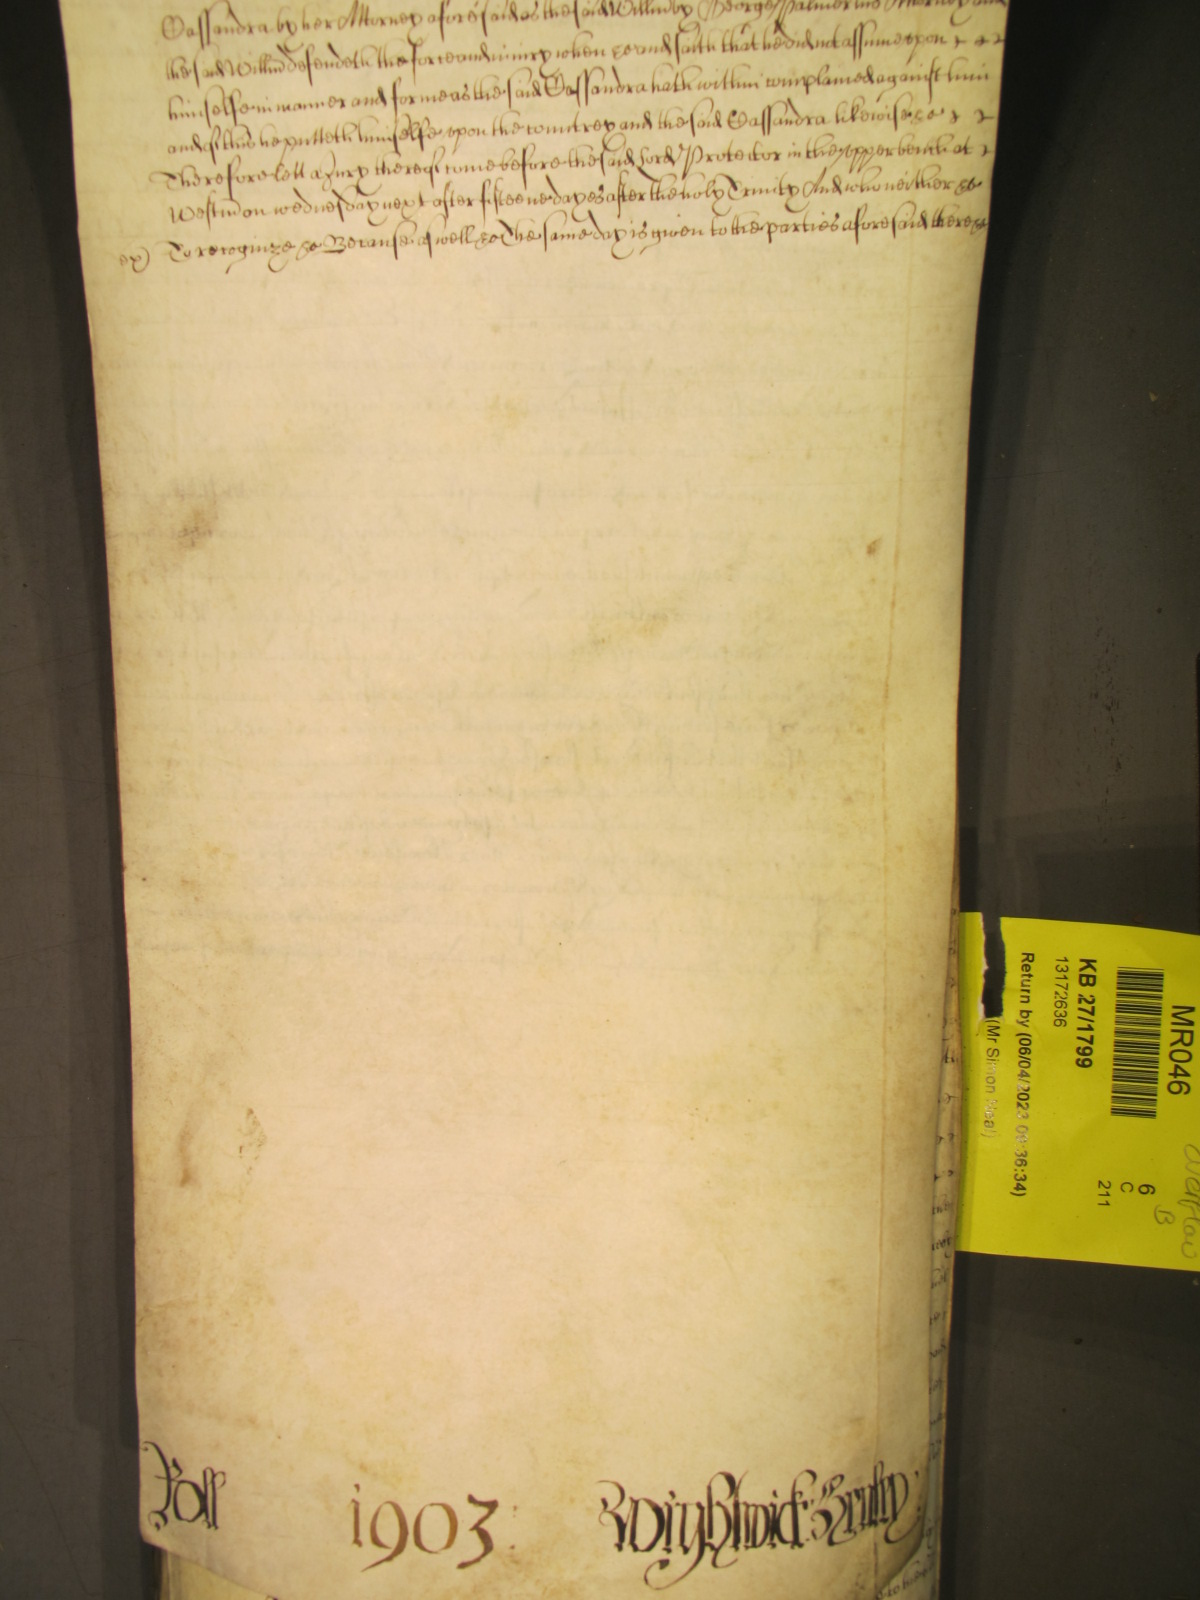 Cassandra by her Attorney aforesaid as the said Willm by George Palmer his Attorney and
the said Willm defendeth the force and iniury when &c and saith that he did not assume upon
himselfe in manner and forme as the said Cassandra hath within complained against him
and of this he putteth himselfe upon the countrey and the said Cassandra likewise &c
Therefore lett a Jury thereof come before the said Lord Protector in the upper bench at
Westm on wednesday next after fifteene dayes after the holy Trinity And who neither &c
To recognize &c Because aswell &c The same day is given to the parties aforesaid there &c
Roll 1903 Wightwick
MR046
KB 27/1799
13172636
Return by (06/04/2023 09:36:34)
(Mr Simon Neal)
6
C
211
B